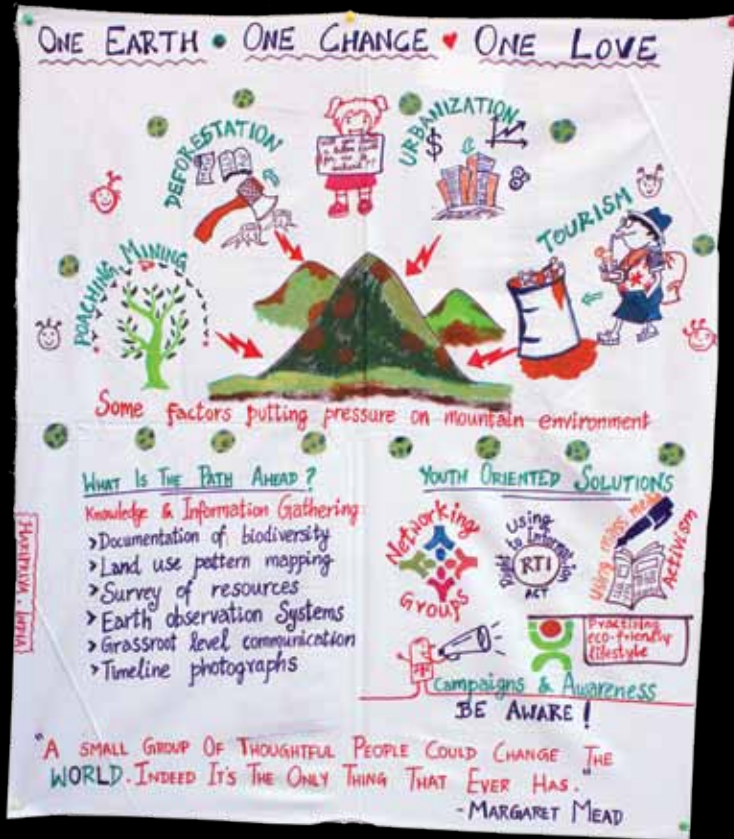 ONE EARTH • ONE CHANGE ♥ ONE LOVE
DEFORESTATION
URBANIZATION
$
POACHING, MINING
TOURISM
Some factors putting pressure on mountain environment
WHAT IS THE PATH AHEAD?
Knowledge & Information Gathering
>Documentation of biodiversity
>Land use pattern mapping
>Survey of resources
>Earth observation Systems
>Grassroot level communication
>Timeline photographs
YOUTH ORIENTED SOLUTIONS
Networking
Groups
Using
Right to Information
RTI
ACT
Using mass media
Activism
Practising
eco-friendly
lifestyle
Campaigns & Awareness
BE AWARE!
"A SMALL GROUP OF THOUGHTFUL PEOPLE COULD CHANGE THE
WORLD. INDEED IT'S THE ONLY THING THAT EVER HAS."
-MARGARET MEAD
INDIA